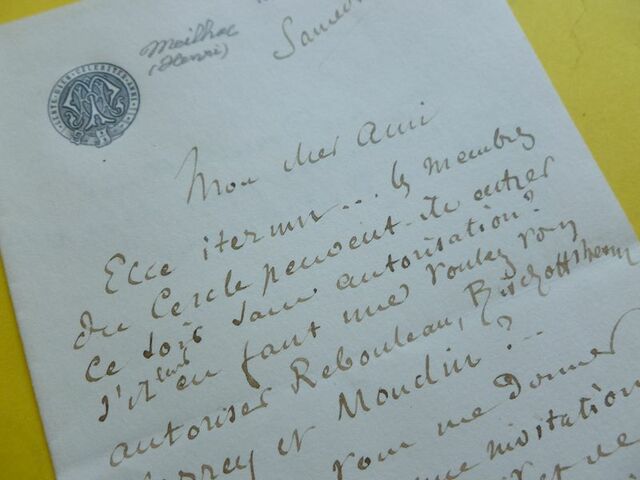 Meilhac
(Henri)
Samedi
Mon cher Ami
Ecce iterum... les membres
du Cercle peuvent-ils entrer
ce soir sans autorisation?
S'il en faut une voulez vous
autoriser Rebouleau, Bischoffsheim
et Moudin?..
vous me donner
une invitation
et de